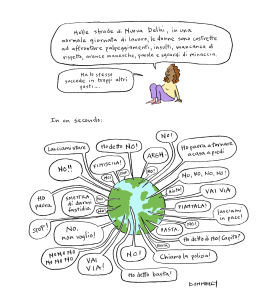 Nelle strade di Nuova Delhi, in una
normale giornata di lavoro, le donne sono costrette
ad affrontare palpeggiamenti, insulti, mancanza di
rispetto, avance manesche, parole e sguardi di minaccia.
Ma lo stesso
succede in troppi altri
posti...
In un secondo:
Lasciami stare
Ho detto NO!
ARGH
No!
Ho paura a tornare
a casa a piedi
FINISCILA!
NO!!
No, No, No, No!
Aiuto!
VAI VIA
Ho
paura
SMETTILA
di darmi
fastidio
PIANTALA!
lasciami
in pace!
STOP!
No,
non voglio!
BASTA
NO!
Ho detto di No! Capito?
No No No
No No No
VAI
VIA!
NO!
Chiamo la polizia!
Ho detto basta!